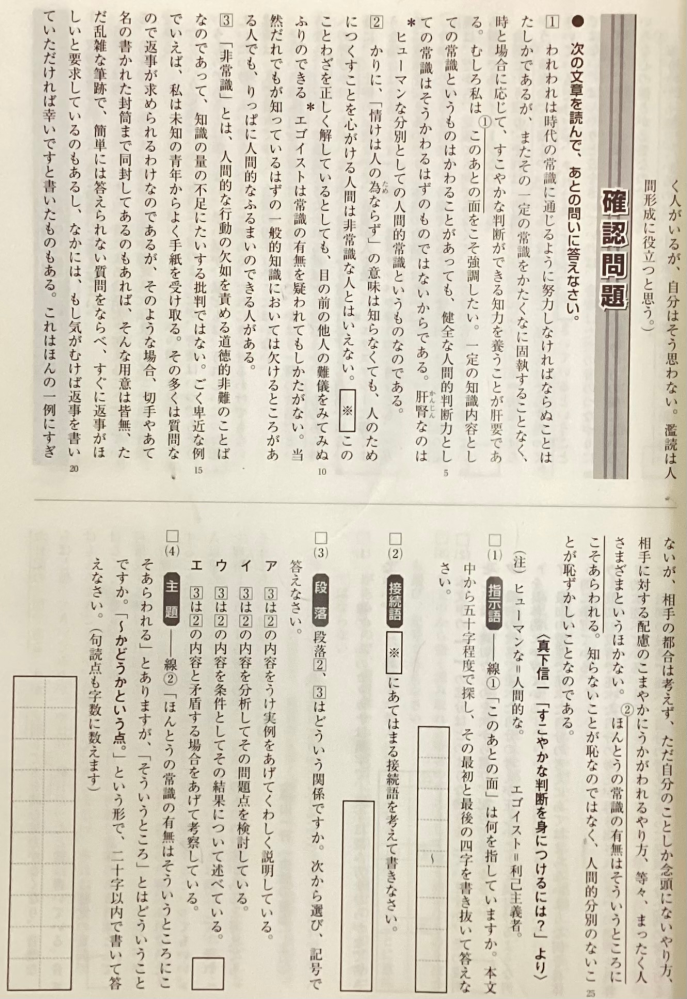 く人がいるが、自分はそう思わない。濫読は人
間形成に役立つと思う。）
確認問題
● 次の文章を読んで、あとの問いに答えなさい。
1 われわれは時代の常識に通じるように努力しなければならぬことは
たしかであるが、またその一定の常識をかたくなに固執することなく、
時と場合に応じて、すこやかな判断ができる知力を養うことが肝要であ
る。むしろ私は①このあとの面をこそ強調したい。一定の知識内容とし
ての常識というものはかわることがあっても、健全な人間的判断力とし 5
ての常識はそうかわるはずのものではないからである。肝腎なのは
かんじん
*ヒューマンな分別としての人間的常識というものなのである。
2 かりに、「情けは人の為ならず」の意味は知らなくても、人のため
ため
につくすことを心がける人間は非常識な人とはいえない。 ※ この
ことわざを正しく解しているとしても、目の前の他人の難儀をみてみぬ 10
ふりのできる*エゴイストは常識の有無を疑われてもしかたがない。当
然だれでもが知っているはずの一般的知識においては欠けるところがあ
る人でも、りっぱに人間的なふるまいのできる人がある。
3 「非常識」とは、人間的な行動の欠如を責める道徳的非難のことば
なのであって、知識の量の不足にたいする批判ではない。ごく卑近な例 15
でいえば、私は未知の青年からよく手紙を受け取る。その多くは質問な
ので返事が求められるわけなのであるが、そのような場合、切手やあて
名の書かれた封筒まで同封してあるのもあれば、そんな用意は皆無、た
だ乱雑な筆跡で、簡単には答えられない質問をならべ、すぐに返事がほ
しいと要求しているのもあるし、なかには、もし気がむけば返事を書い 20
ていただければ幸いですと書いたものもある。これはほんの一例にすぎ
ないが、相手の都合は考えず、ただ自分のことしか念頭にないやり方、
相手に対する配慮のこまやかにうかがわれるやり方、等々、まったく人
さまざまというほかない。②ほんとうの常識の有無はそういうところに
こそあらわれる。知らないことが恥なのではなく、人間的分別のないこ 25
とが恥ずかしいことなのである。
〈真下信一「すこやかな判断を身につけるには？」より〉
（注） ヒューマンな＝人間的な。 エゴイスト＝利己主義者。
□(1) 指示語 ――線①「このあとの面」は何を指していますか。本文
中から五十字程度で探し、その最初と最後の四字を書き抜いて答えな
さい。
～
□(2) 接続語 ※ にあてはまる接続語を考えて書きなさい。
□(3) 段落 段落2、3はどういう関係ですか。次から選び、記号で
答えなさい。
ア 3は2の内容をうけ実例をあげてくわしく説明している。
イ 3は2の内容を分析してその問題点を検討している。
ウ 3は2の内容を条件としてその結果について述べている。
エ 3は2の内容と矛盾する場合をあげて考察している。
□(4) 主題 ――線②「ほんとうの常識の有無はそういうところにこ
そあらわれる」とありますが、「そういうところ」とはどういうこと
ですか。「～かどうかという点。」という形で、二十字以内で書いて答
えなさい。（句読点も字数に数えます）